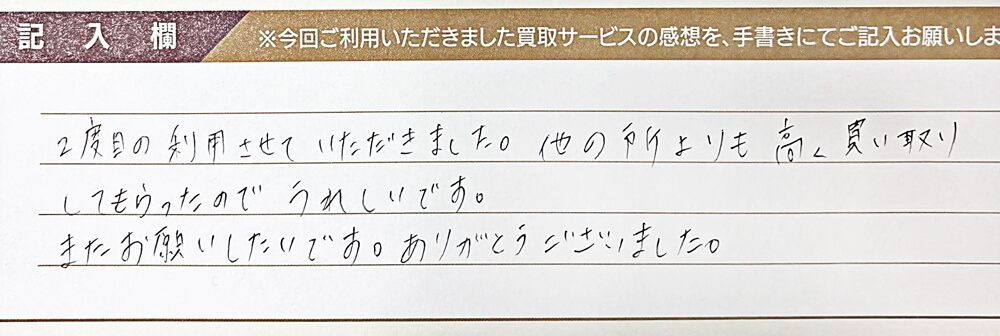 記入欄
※今回ご利用いただきました買取サービスの感想を、手書きにてご記入お願いしま
2度目の利用させていただきました。他の所よりも高く買い取り
してもらったのでうれしいです。
またお願いしたいです。ありがとうございました。